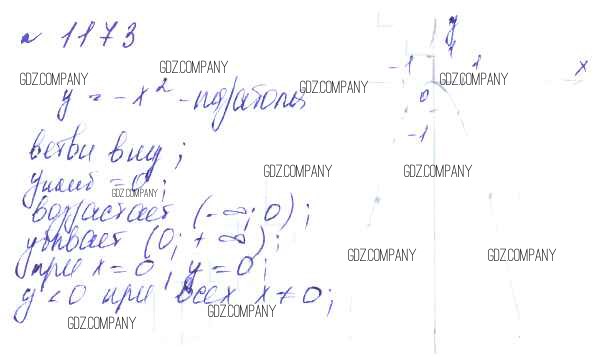 № 1173
y = -x² - парабола
ветви вниз;
yнаиб = 0;
возрастает (-∞; 0);
убывает (0; +∞);
при x = 0, y = 0;
y < 0 при всех x ≠ 0;
y
1
-1
1
x
0
-1
GDZ.COMPANY
GDZ.COMPANY
GDZ.COMPANY
GDZ.COMPANY
GDZ.COMPANY
GDZ.COMPANY
GDZ.COMPANY
GDZ.COMPANY
GDZ.COMPANY
GDZ.COMPANY
GDZ.COMPANY